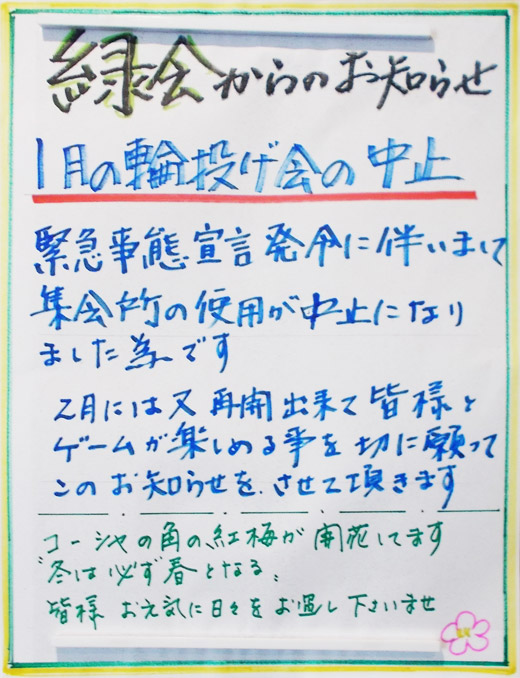 緑会からのお知らせ
1月の輪投げ会の中止
緊急事態宣言発令に伴いまして
集会所の使用が中止になり
ました為です
2月には又再開出来て皆様と
ゲームが楽しめる事を切に願って
このお知らせを、させて頂きます
コーシャの角の紅梅が開苑してます
〝冬は必ず春となる〟
皆様 お元気に日々をお過し下さいませ